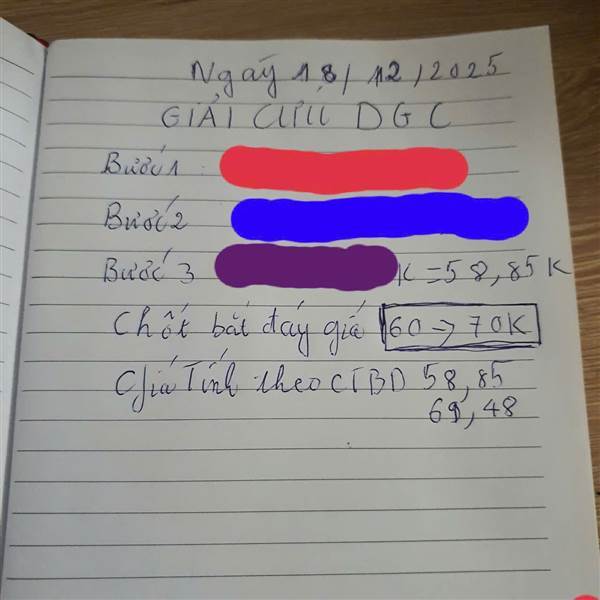 Ngáy 18/12/2025
GIẢI CỨU DGC
Bước 1
Bước 2
Bước 3 K = 58,85K
Chốt bắt đáy giá 60 → 70K
Giá Tính theo CTBD 58,85
69,48